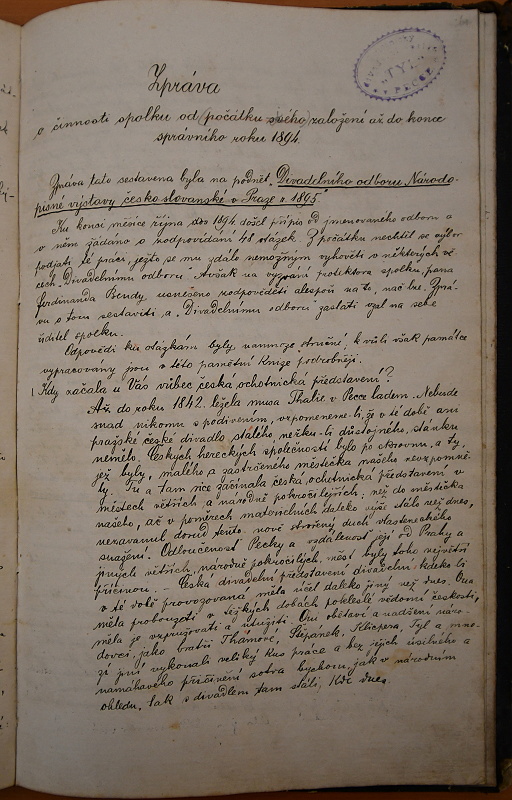 Zpráva
o činnosti spolku od (počátku svého) založení až do konce
správního roku 1894.
Zpráva tato sestavena byla na podnět „Divadelního odboru Národo-
pisné výstavy česko slovanské v Praze v 1895.“
Ku konci měsíce října 1894 došel přípis od jmenovaného odboru a
v něm žádáno o zodpovídání 48 otázek. Z počátku nechtěl se výbor
podjati té práci, ježto se mu zdálo nemožným vyhověti v některých vě-
cech „Divadelnímu odboru“. Avšak na vyzvání protektora spolku, pana
Ferdinanda Bendy usneseno zodpověděti alespoň na to, nač lze. Zprá-
vu o tom sestaviti a „Divadelnímu odboru“ zaslati vzal na sebe
ředitel spolku.
Odpovědi ku otázkám byly stručné, k vůli však památce
vypracovány jsou v této pamětní knize podrobněji.
1 Kdy začala u Vás vůbec česká ochotnická představení?
Až do roku 1842. ležela musa Thalie v Pecce ladem. Nebude
snad nikomu s podivením, vzpomeneme-li, že v té době ani
pražské české divadlo stálého, nežku-li důstojného, stánku
nemělo. Českých hereckých společností bylo po skrovnu, a ty,
jež byly, malého a zastrčeného městečka našeho nevzpomně-
ly. Tu a tam sice začínala česká ochotnická představení v
městech větších a národně pokročilejších, než do městečka
našeho, ač v poměrech materielních daleko výše stálo než dnes,
nezavanul dosud tento nově stvořený duch vlasteneckého
snažení. Odloučenost Pecky a vzdálenost její od Prahy a
jiných větších, národně pokročilých, měst byly toho největší
příčinou. – Česká divadelní představení divadelní kdeko li
v té době provozovaná měla účel daleko jiný než dnes. Ona
měla probouzeti v těžkých dobách pokleslé vědomí českosti,
měla je vzpružovati a utužiti. Oni obětaví a nadšení náro-
dovci, jako bratři Thámové, Štěpánek, Klicpera, Tyl a mno-
zí jiní vykonali veliký kus práce a bez jejich úsilného a
namáhavého přičinění sotva bychom, jak v národním
ohledu, tak s divadlem tam stáli, kde dnes.